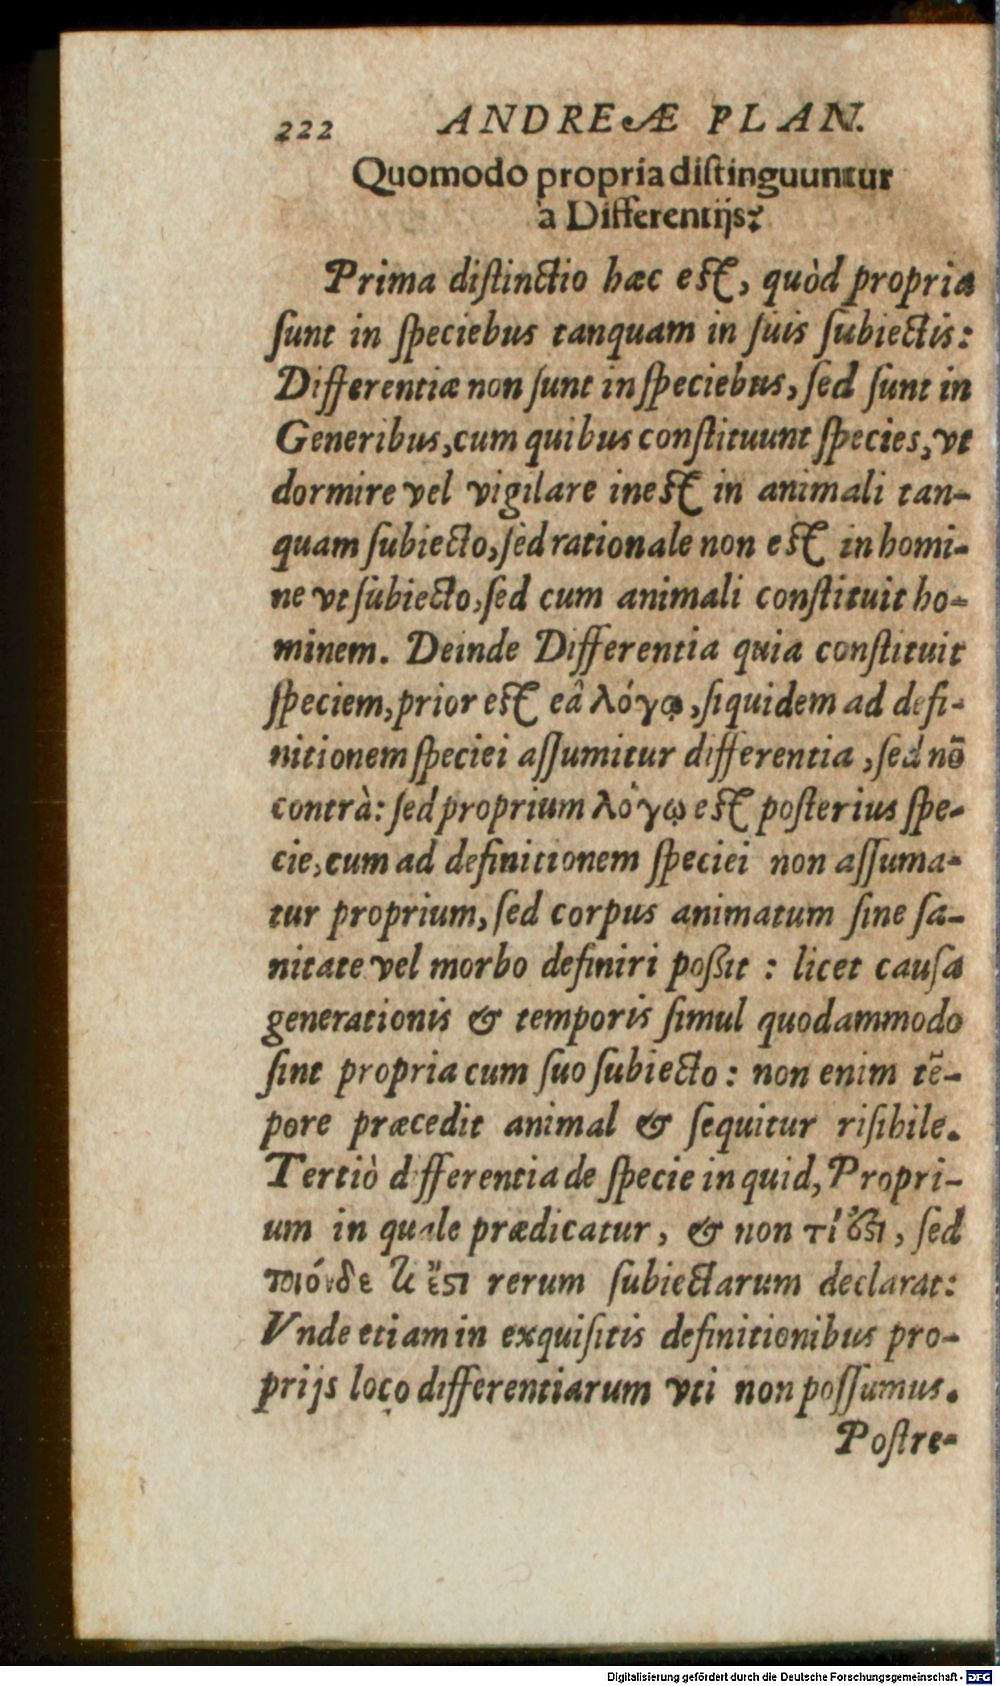 222 ANDREÆ PLAN.
Quomodo propria diſtinguuntur
à Differentijs?
Prima diſtinctio hæc eſt, quòd propria
ſunt in ſpeciebus tanquam in ſuis ſubiectis:
Differentiæ non ſunt in ſpeciebus, ſed ſunt in
Generibus, cum quibus conſtituunt ſpecies, vt
dormire vel vigilare ineſt in animali tan-
quam ſubiecto, ſed rationale non eſt in homi-
ne vt ſubiecto, ſed cum animali conſtituit ho-
minem. Deinde Differentia quia conſtituit
ſpeciem, prior eſt eâ λόγῳ, ſiquidem ad defi-
nitionem ſpeciei aſſumitur differentia, ſed nō
contrà: ſed proprium λόγῳ eſt poſterius ſpe-
cie, cum ad definitionem ſpeciei non aſſuma-
tur proprium, ſed corpus animatum ſine ſa-
nitate vel morbo definiri poßit: licet cauſa
generationis & temporis ſimul quodammodo
ſint propria cum ſuo ſubiecto: non enim tē-
pore præcedit animal & ſequitur riſibile.
Tertiò differentia de ſpecie in quid, Propri-
um in quale prædicatur, & non τί ὅϛι, ſed
ποιόνδε τὶ ἔϛι rerum ſubiectarum declarat:
Vnde etiam in exquiſitis definitionibus pro-
prijs loco differentiarum vti non poſſumus.
Poſtre-
Digitalisierung gefördert durch die Deutsche Forschungsgemeinschaft - DFG